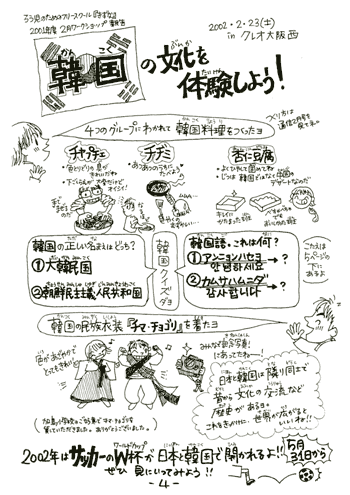 ろう児のためのフリースクール『きずな』
2001年度 2月ワークショップ 報告
2002・2・23(土)
in クレオ大阪西
韓国の文化を
かん こく
ぶんか
体験しよう!
たいけん
4つのグループにわかれて韓国料理をつくったヨ
つくり方は
通信2月号を
見て下さい。
チャプチェ
チヂミ
杏仁豆腐
韓国の正しい名まえはどっち?
①大韓民国
②朝鮮民主主義人民共和国
韓国クイズダヨ
韓国語。これは何?
①アンニョンハセヨ → ?
안녕하세요
②カムサハムニダ → ?
감사합니다
こたえは
5ページの
下にあるよ
韓国の民族衣装『チマ・チョゴリ』を着たヨ
色があざやかで
とってもきれい!
みんなで記念写真!
にあってたね〜!
日本と韓国は隣り同士で
昔から文化の交流など
歴史があるヨ。
これをきっかけに、世界が広がると
いいね!!
2002年はサッカーのW杯が日本と韓国で開かれるよ!!
ワールドカップ
5月
31日から
ぜひ見にいってみよう!!
-4-